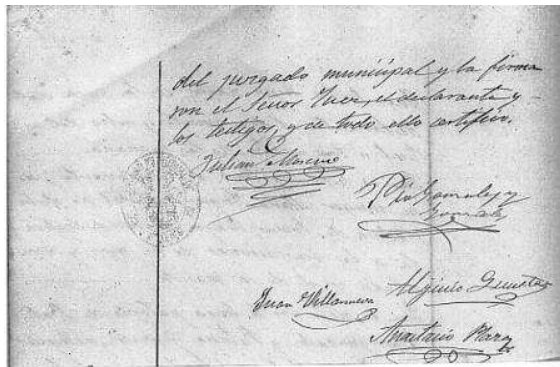 del jurgado municipal y la firma
con el Señor Juez, el declarante y
los testigos, y de todo ello certifico.
Julian Moreno
Pio Gonzalez y
Gonzalez
Juan Villanueva
Higinio
Anastasio Plaza